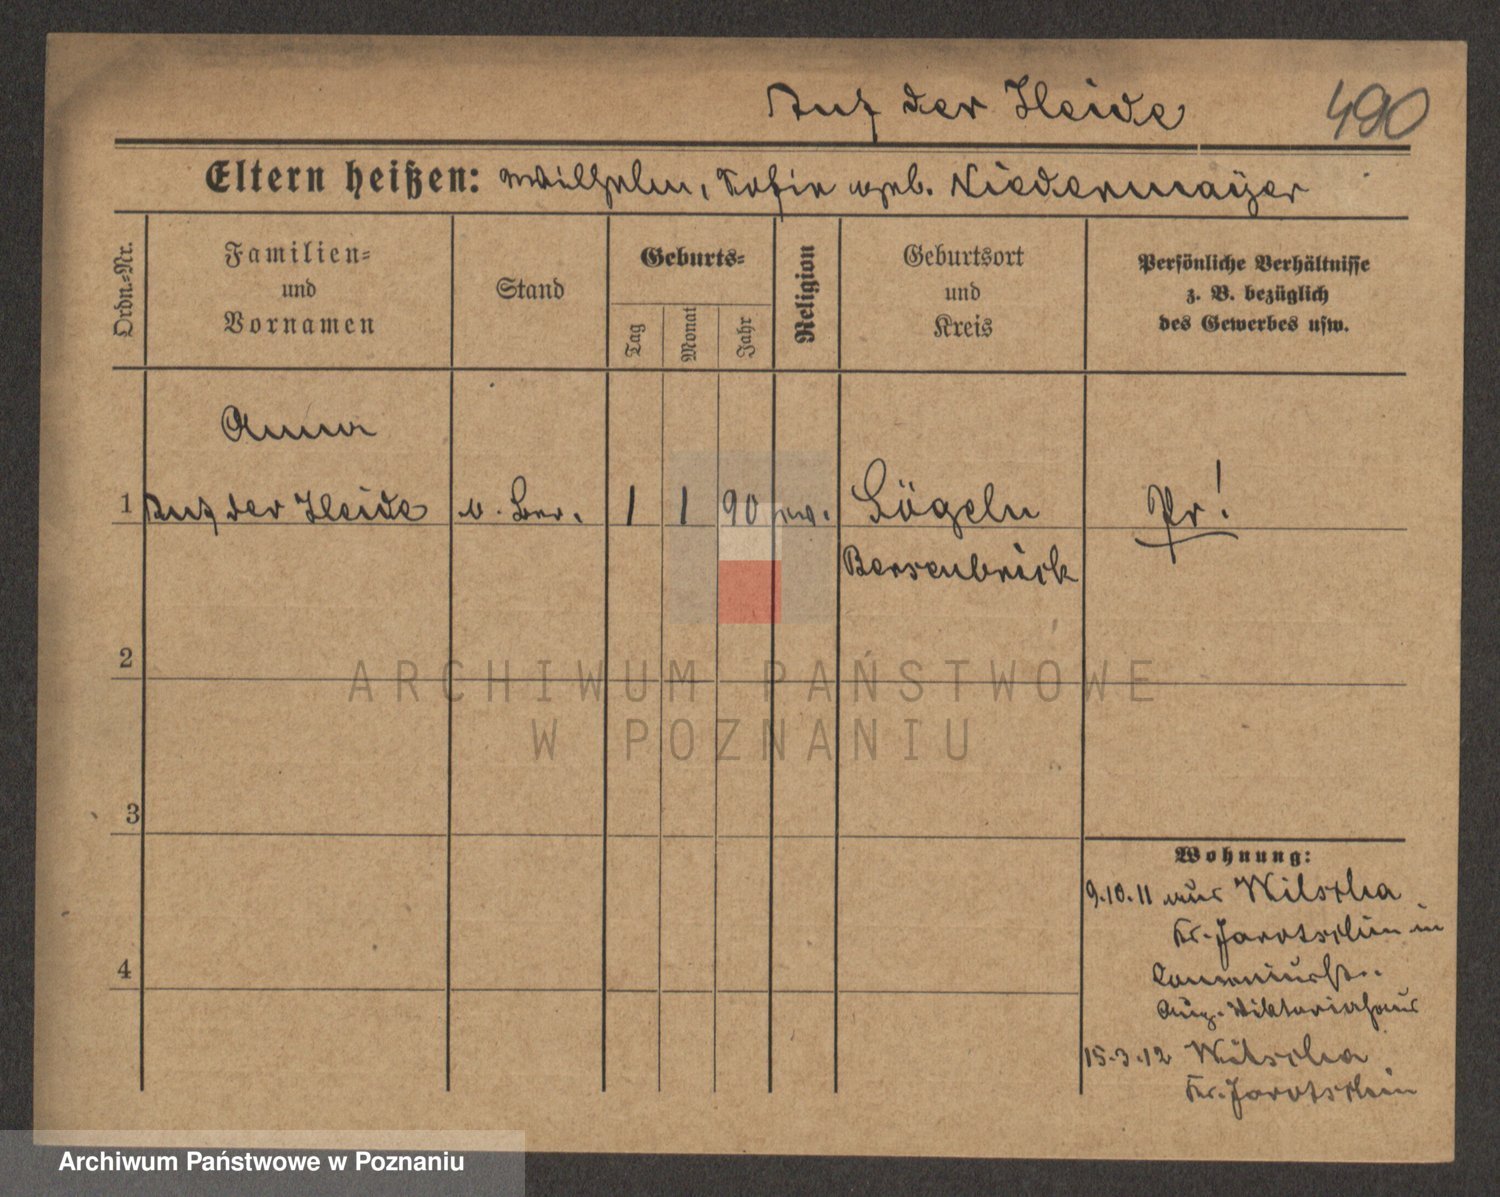 Auf der Heide 490
Eltern heißen: Wilhelm, Sofie geb. Niedermayer
Ordn.-Nr.
Familien-
und
Vornamen
Stand
Geburts-
Tag
Monat
Jahr
Religion
Geburtsort
und
Kreis
Persönliche Verhältnisse
z. B. bezüglich
des Gewerbes usw.
Anna
1 Auf der Heide o. Ber. 1 1 90 ev. Lögeln Pr!
Bersenbrück
2
ARCHIWUM PAŃSTWOWE
W POZNANIU
3
Wohnung:
9.10.11 aus Witscha
Kr. Jarotschin in
Comeniusstr.
4
Aug. Viktoriahaus
15.3.12 Witscha
Kr. Jarotschin
Archiwum Państwowe w Poznaniu